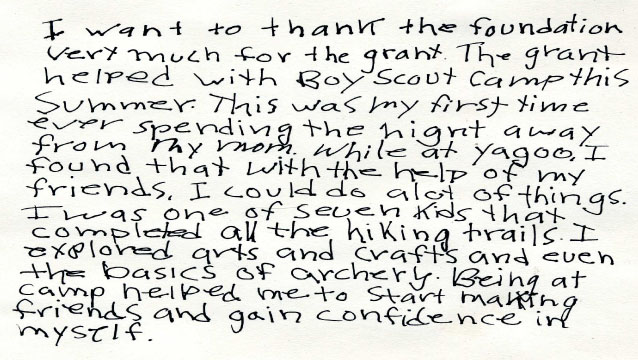 I want to thank the foundation
very much for the grant. The grant
helped with Boy Scout Camp this
Summer. This was my first time
ever spending the night away
from my mom. While at yagoo, I
found that with the help of my
friends, I could do alot of things.
I was one of seven kids that
completed all the hiking trails. I
explored arts and crafts and even
the basics of archery. Being at
camp helped me to start making
friends and gain confidence in
myself.